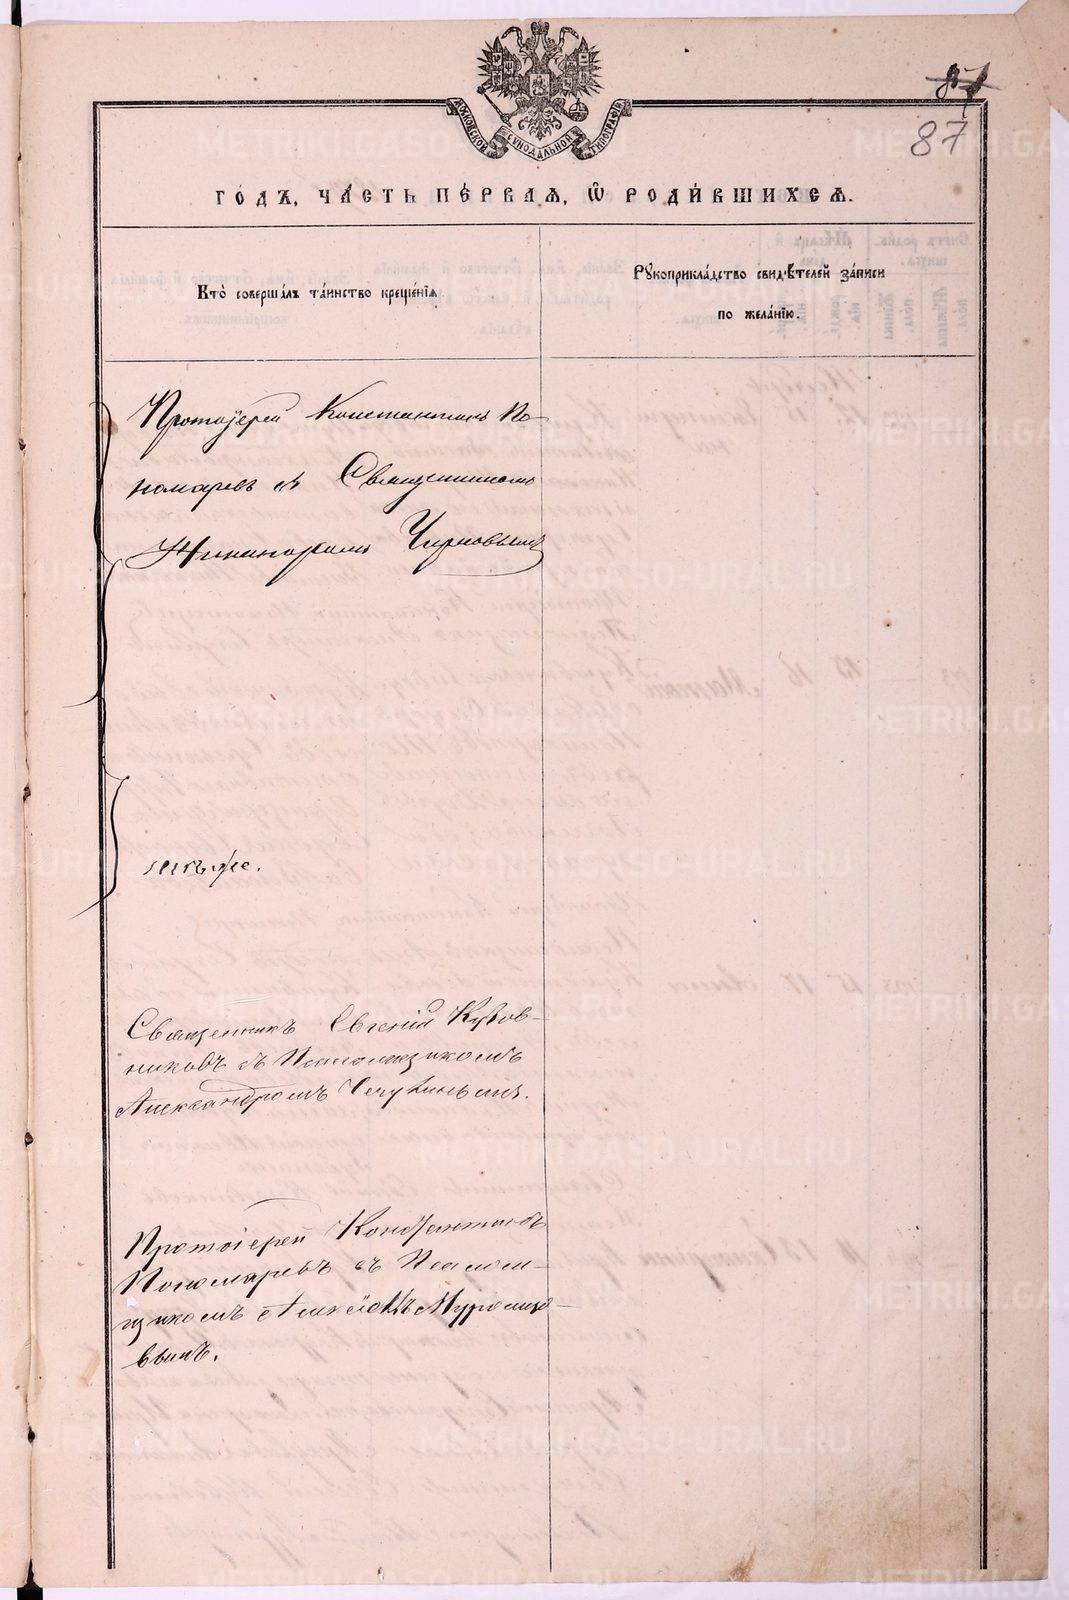 МОСКОВСКОЙ СѴНОДАЛЬНОЙ ТИПОГРАФІИ
87
ГО́ДЪ, ЧА́СТЬ ПЕ́РВАѦ, Ѽ РОДИ́ВШИХСѦ.
Кто̀ соверша́лъ та́инство креще́нїѧ
Рꙋкоприкла́дство свидѣ́телей за́писи
по жела́нїю.
Протоіерей Константинъ По-
номаревъ съ Священникомъ
Никаноромъ Чирковымъ
тѣ же.
Священникъ Евгеній Кузов-
никовъ съ Псаломщикомъ
Александромъ Чечулинымъ.
Протоіерей Константинъ
Пономаревъ съ Псалом-
щикомъ
вымъ.
METRIKI.GASO-URAL.RU